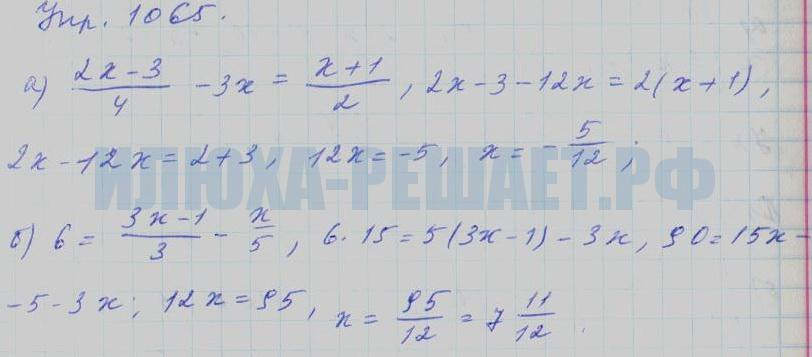 Упр. 1065.
а) (2x-3)/4 - 3x = (x+1)/2, 2x-3-12x=2(x+1),
2x-12x=2+3, 12x=-5, x=-5/12;
ИЛЮХА-РЕШАЕТ.РФ
б) 6 = (3x-1)/3 - x/5, 6·15=5(3x-1)-3x, 90=15x-
-5-3x; 12x=95, x=95/12=7 11/12.